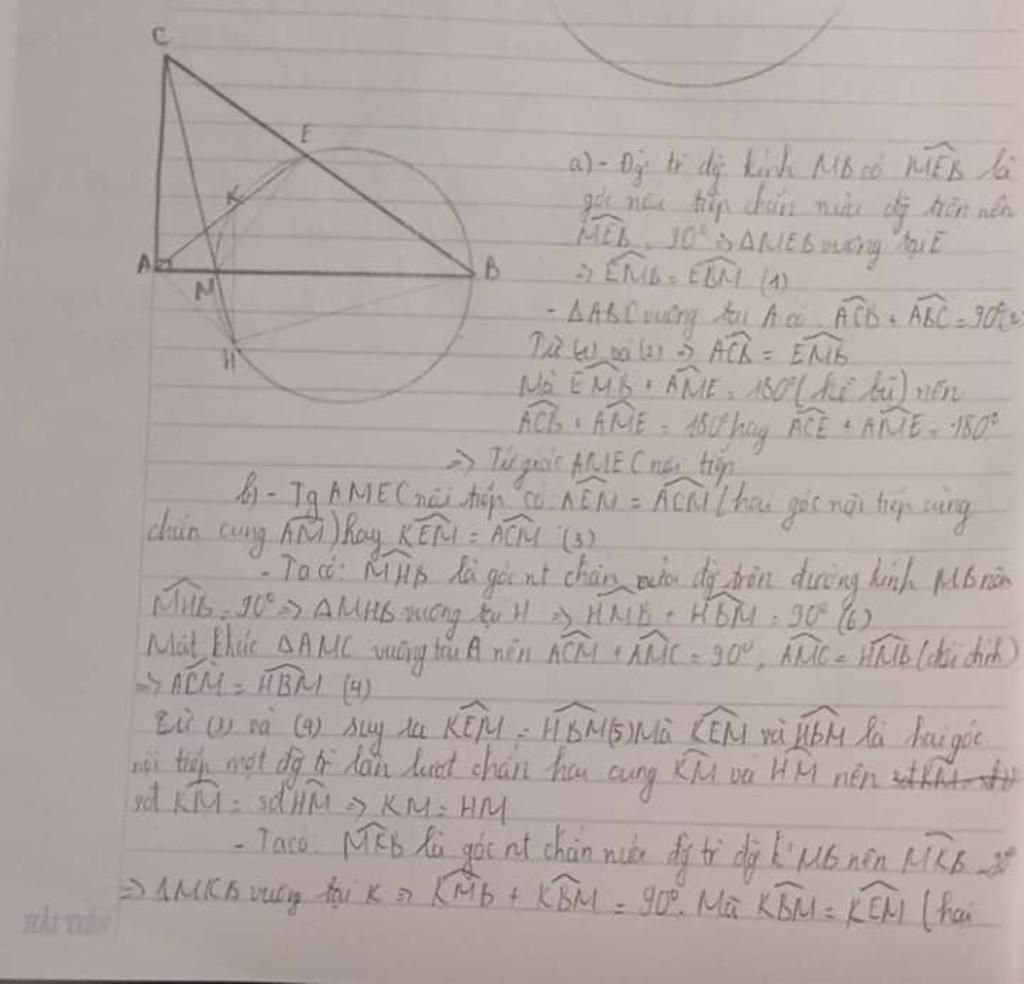 C
E
K
A
B
M
H
a) - Đg tr đg kính MB có MEB là
góc nội tiếp chắn nửa đg tròn nên
MEB = 90° => ΔMEB vuông tại E
=> EMB = EBM (1)
- ΔABC vuông tại A có ACB + ABC = 90° (2)
Từ (1) và (2) => ACB = EMB
Mà EMB + AME = 180° (kề bù) nên
ACB + AME = 180° hay ACE + AME = 180°
=> Tứ giác AMEC nội tiếp
b) - Tg AMEC nội tiếp có AEM = ACM (hai góc nội tiếp cùng
chắn cung AM) hay KEM = ACM (3)
- Ta có: MHB là góc nt chắn nửa đg tròn đường kính MB nên
MHB = 90° => ΔMHB vuông tại H => HMB + HBM = 90° (6)
Mặt khác ΔAMC vuông tại A nên ACM + AMC = 90°, AMC = HMB (đối đỉnh)
=> ACM = HBM (4)
Từ (3) và (4) suy ra KEM = HBM (5) Mà KEM và HBM là hai góc
nội tiếp một đg tr lần lượt chắn hai cung KM và HM nên
sđ KM = sđ HM => KM = HM
- Ta có MKB là góc nt chắn nửa đg tr đg k' MB nên MKB = 90°
=> ΔMKB vuông tại K => KMB + KBM = 90°. Mà KBM = KEM (hai
HẢI TIẾN